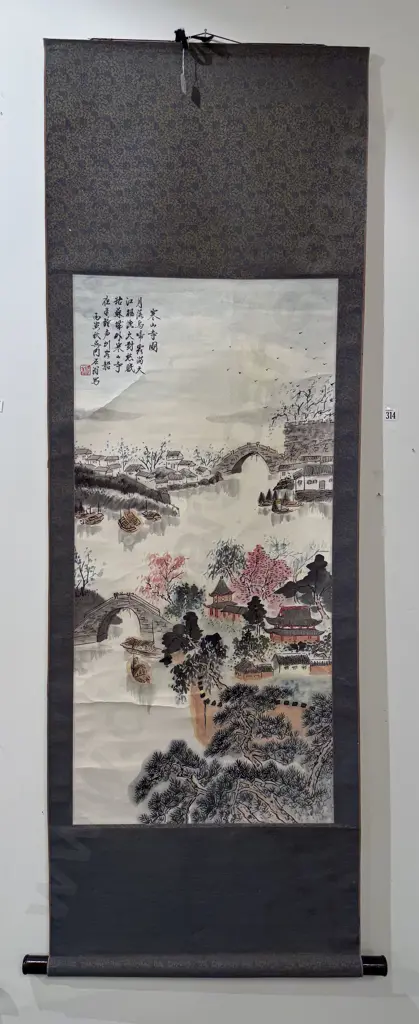 寒山寺圖
月落烏啼霜滿天
江楓漁火對愁眠
姑蘇城外寒山寺
夜半鐘聲到客船
丙寅秋吴門寫
314